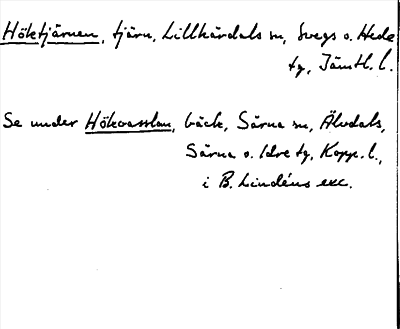 Höktjärnen, tjärn, Lillhärdals sn, Svegs o. Hede
tg, Jämtl. l.
Se under Hökvasslan, bäck, Särna sn, Älvdals,
Särna o. Idre tg, Kopp. l.,
i B. Lindéns exc.